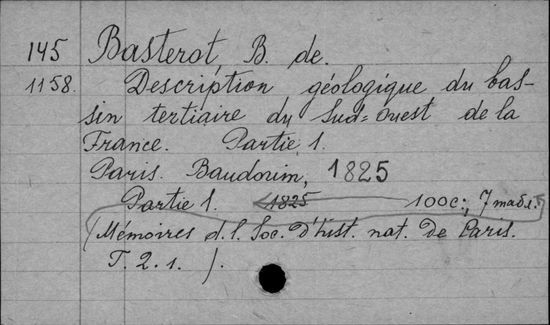 145 Basterot, B. de.
1158. Description géologique du bas-
sin tertiaire du Sud=Ouest de la
France. Partie 1.
Paris. Baudouin, 1825
Partie 1. 1825 100c., 7 табл.
(Mémoires d. l. Soc. d'hist. nat. de Paris.
T. 2. 1. ).